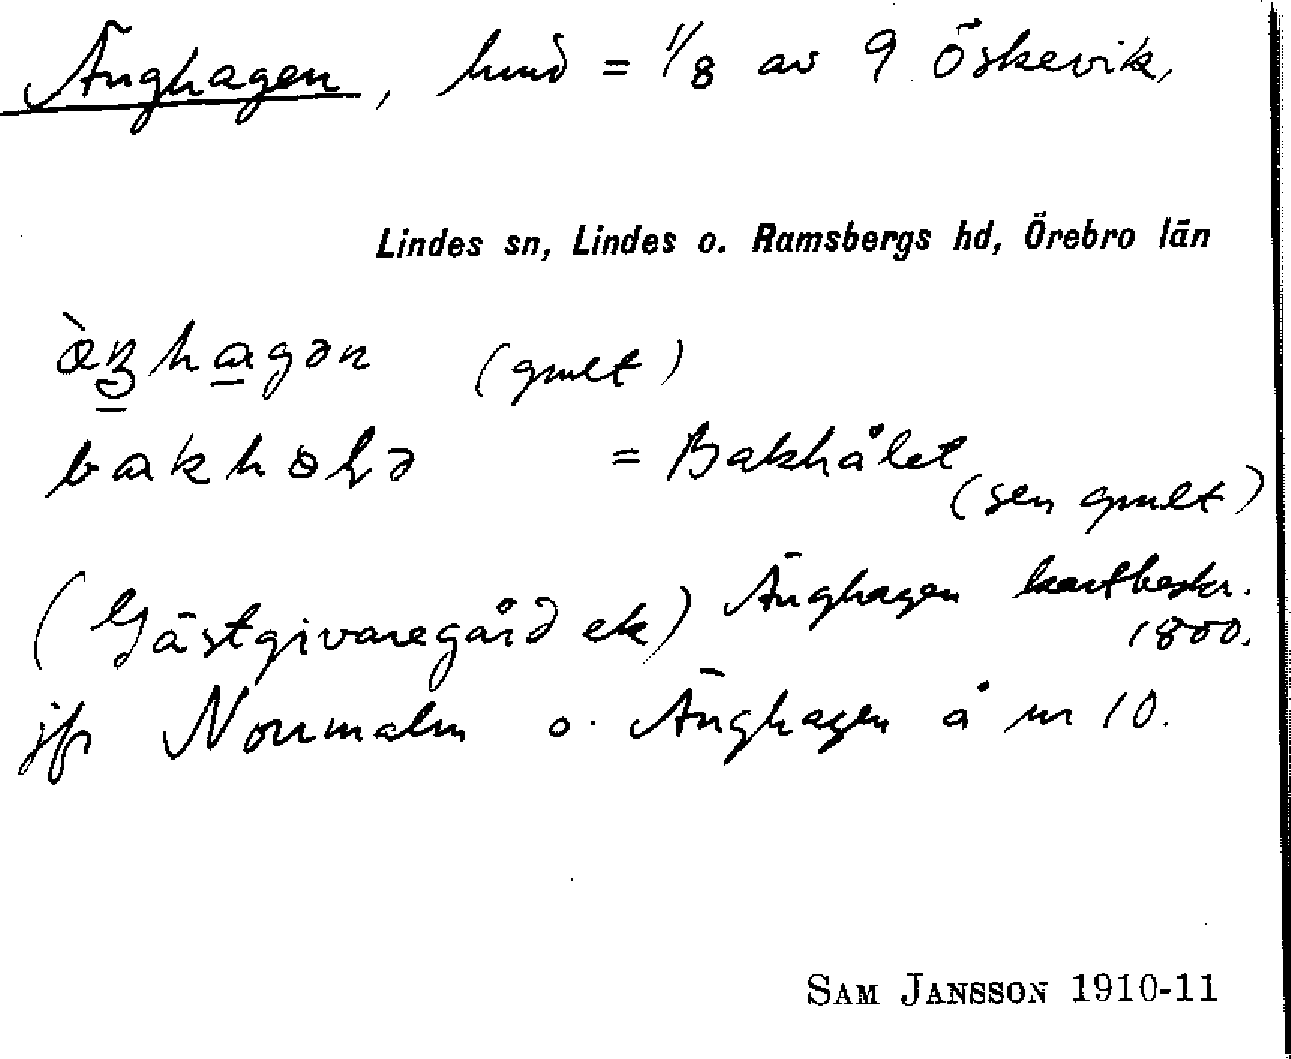 Änghagen, hmd = 1/8 av 9 Öskevik,
Lindes sn, Lindes o. Ramsbergs hd, Örebro län
æ̀ŋhagən (gmlt)
bakholə = Bakhålet
(sen gmlt)
(Gästgivaregård ek) Änghagen kartbeskr.
1800.
jfr Norrmalm o. Änghagen å nr 10.
SAM JANSSON 1910-11